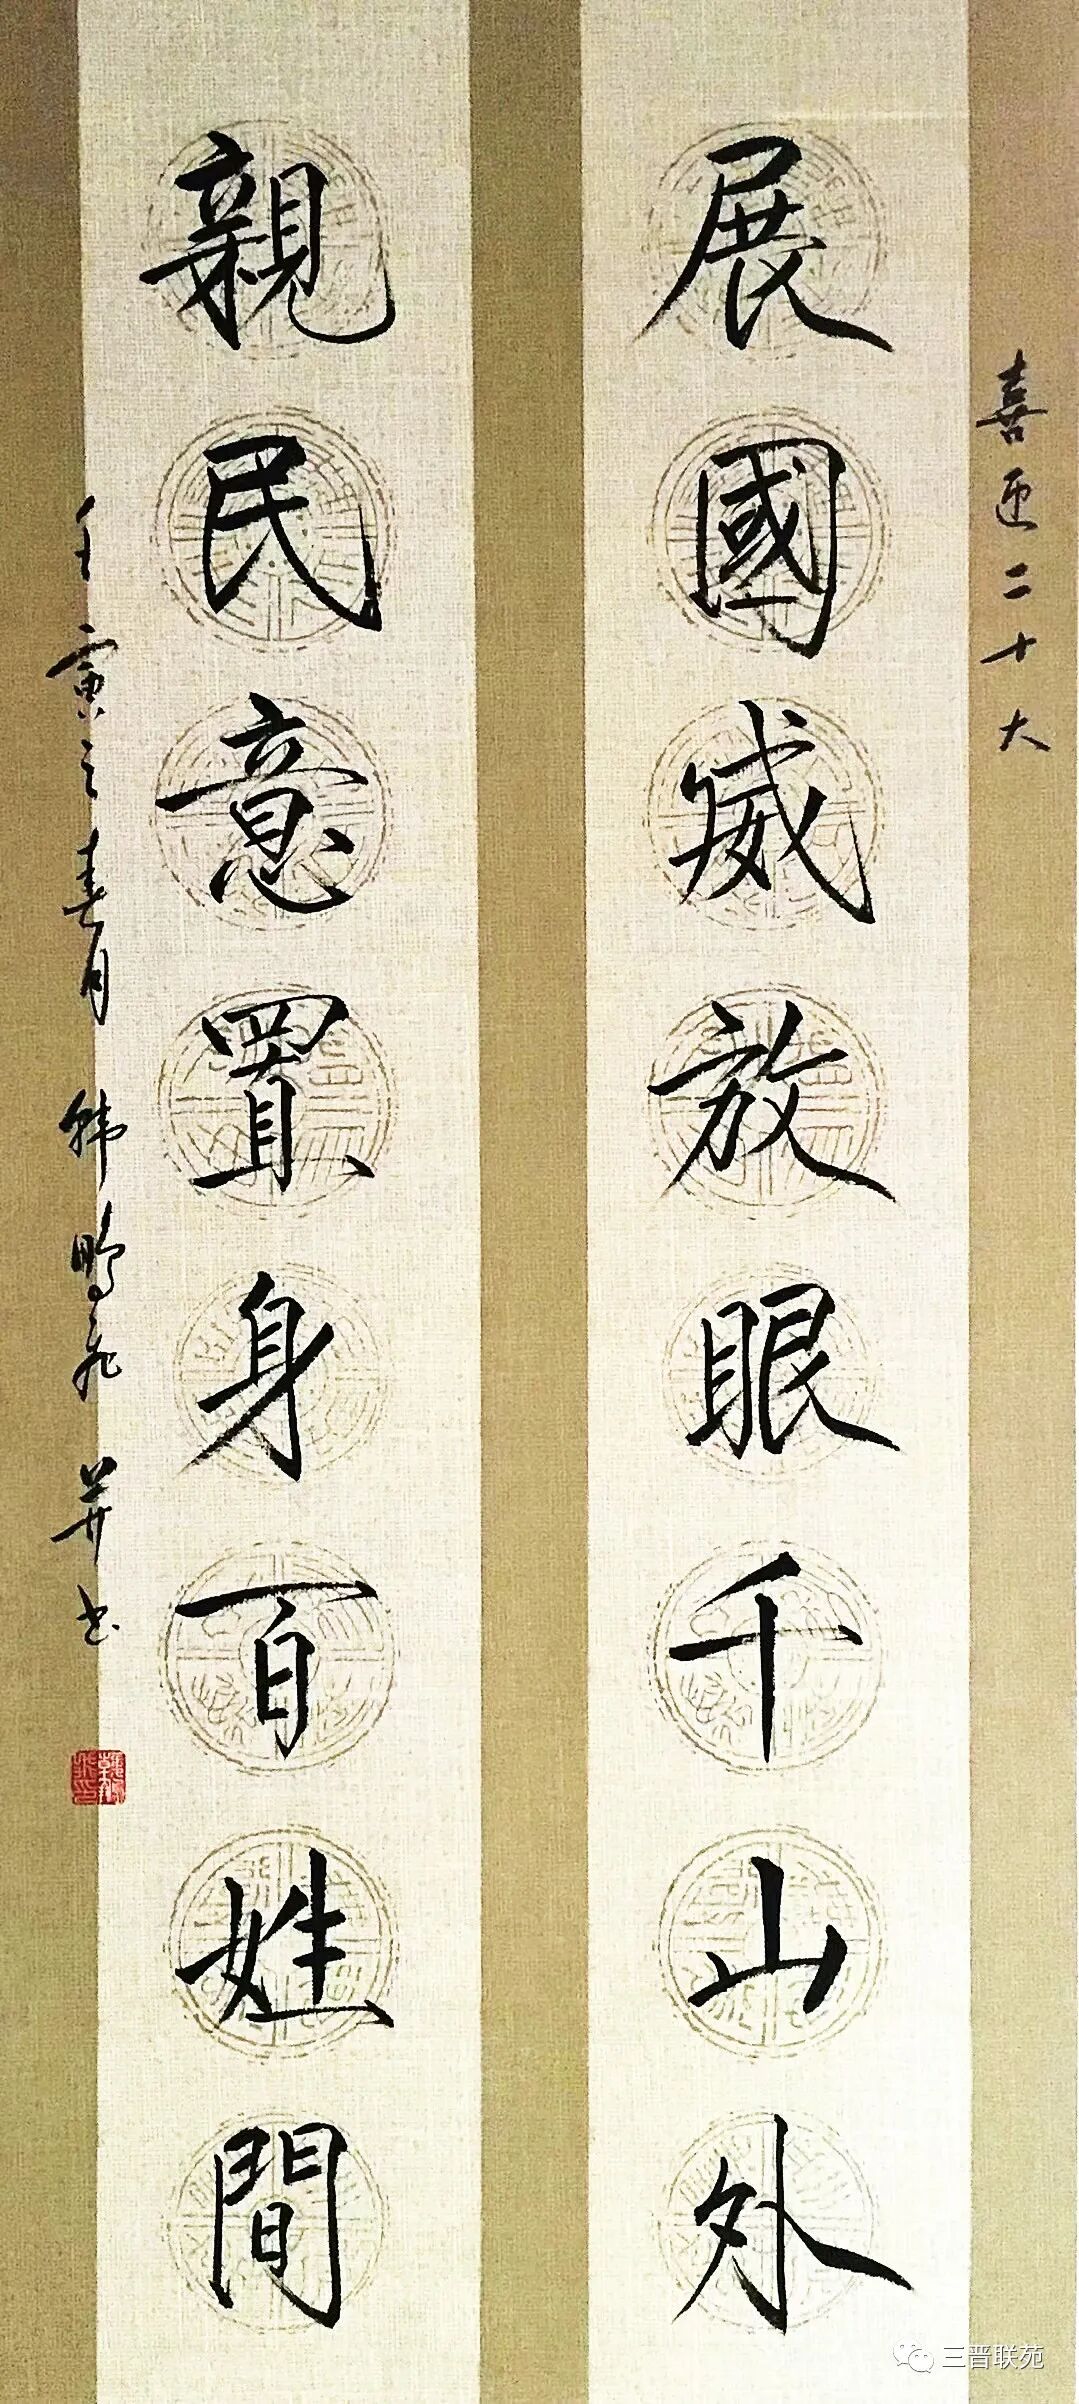 喜迎二十大
展國威放眼千山外
親民意置身百姓間
壬寅之春月 韩鹏飛 并书
三晋联苑